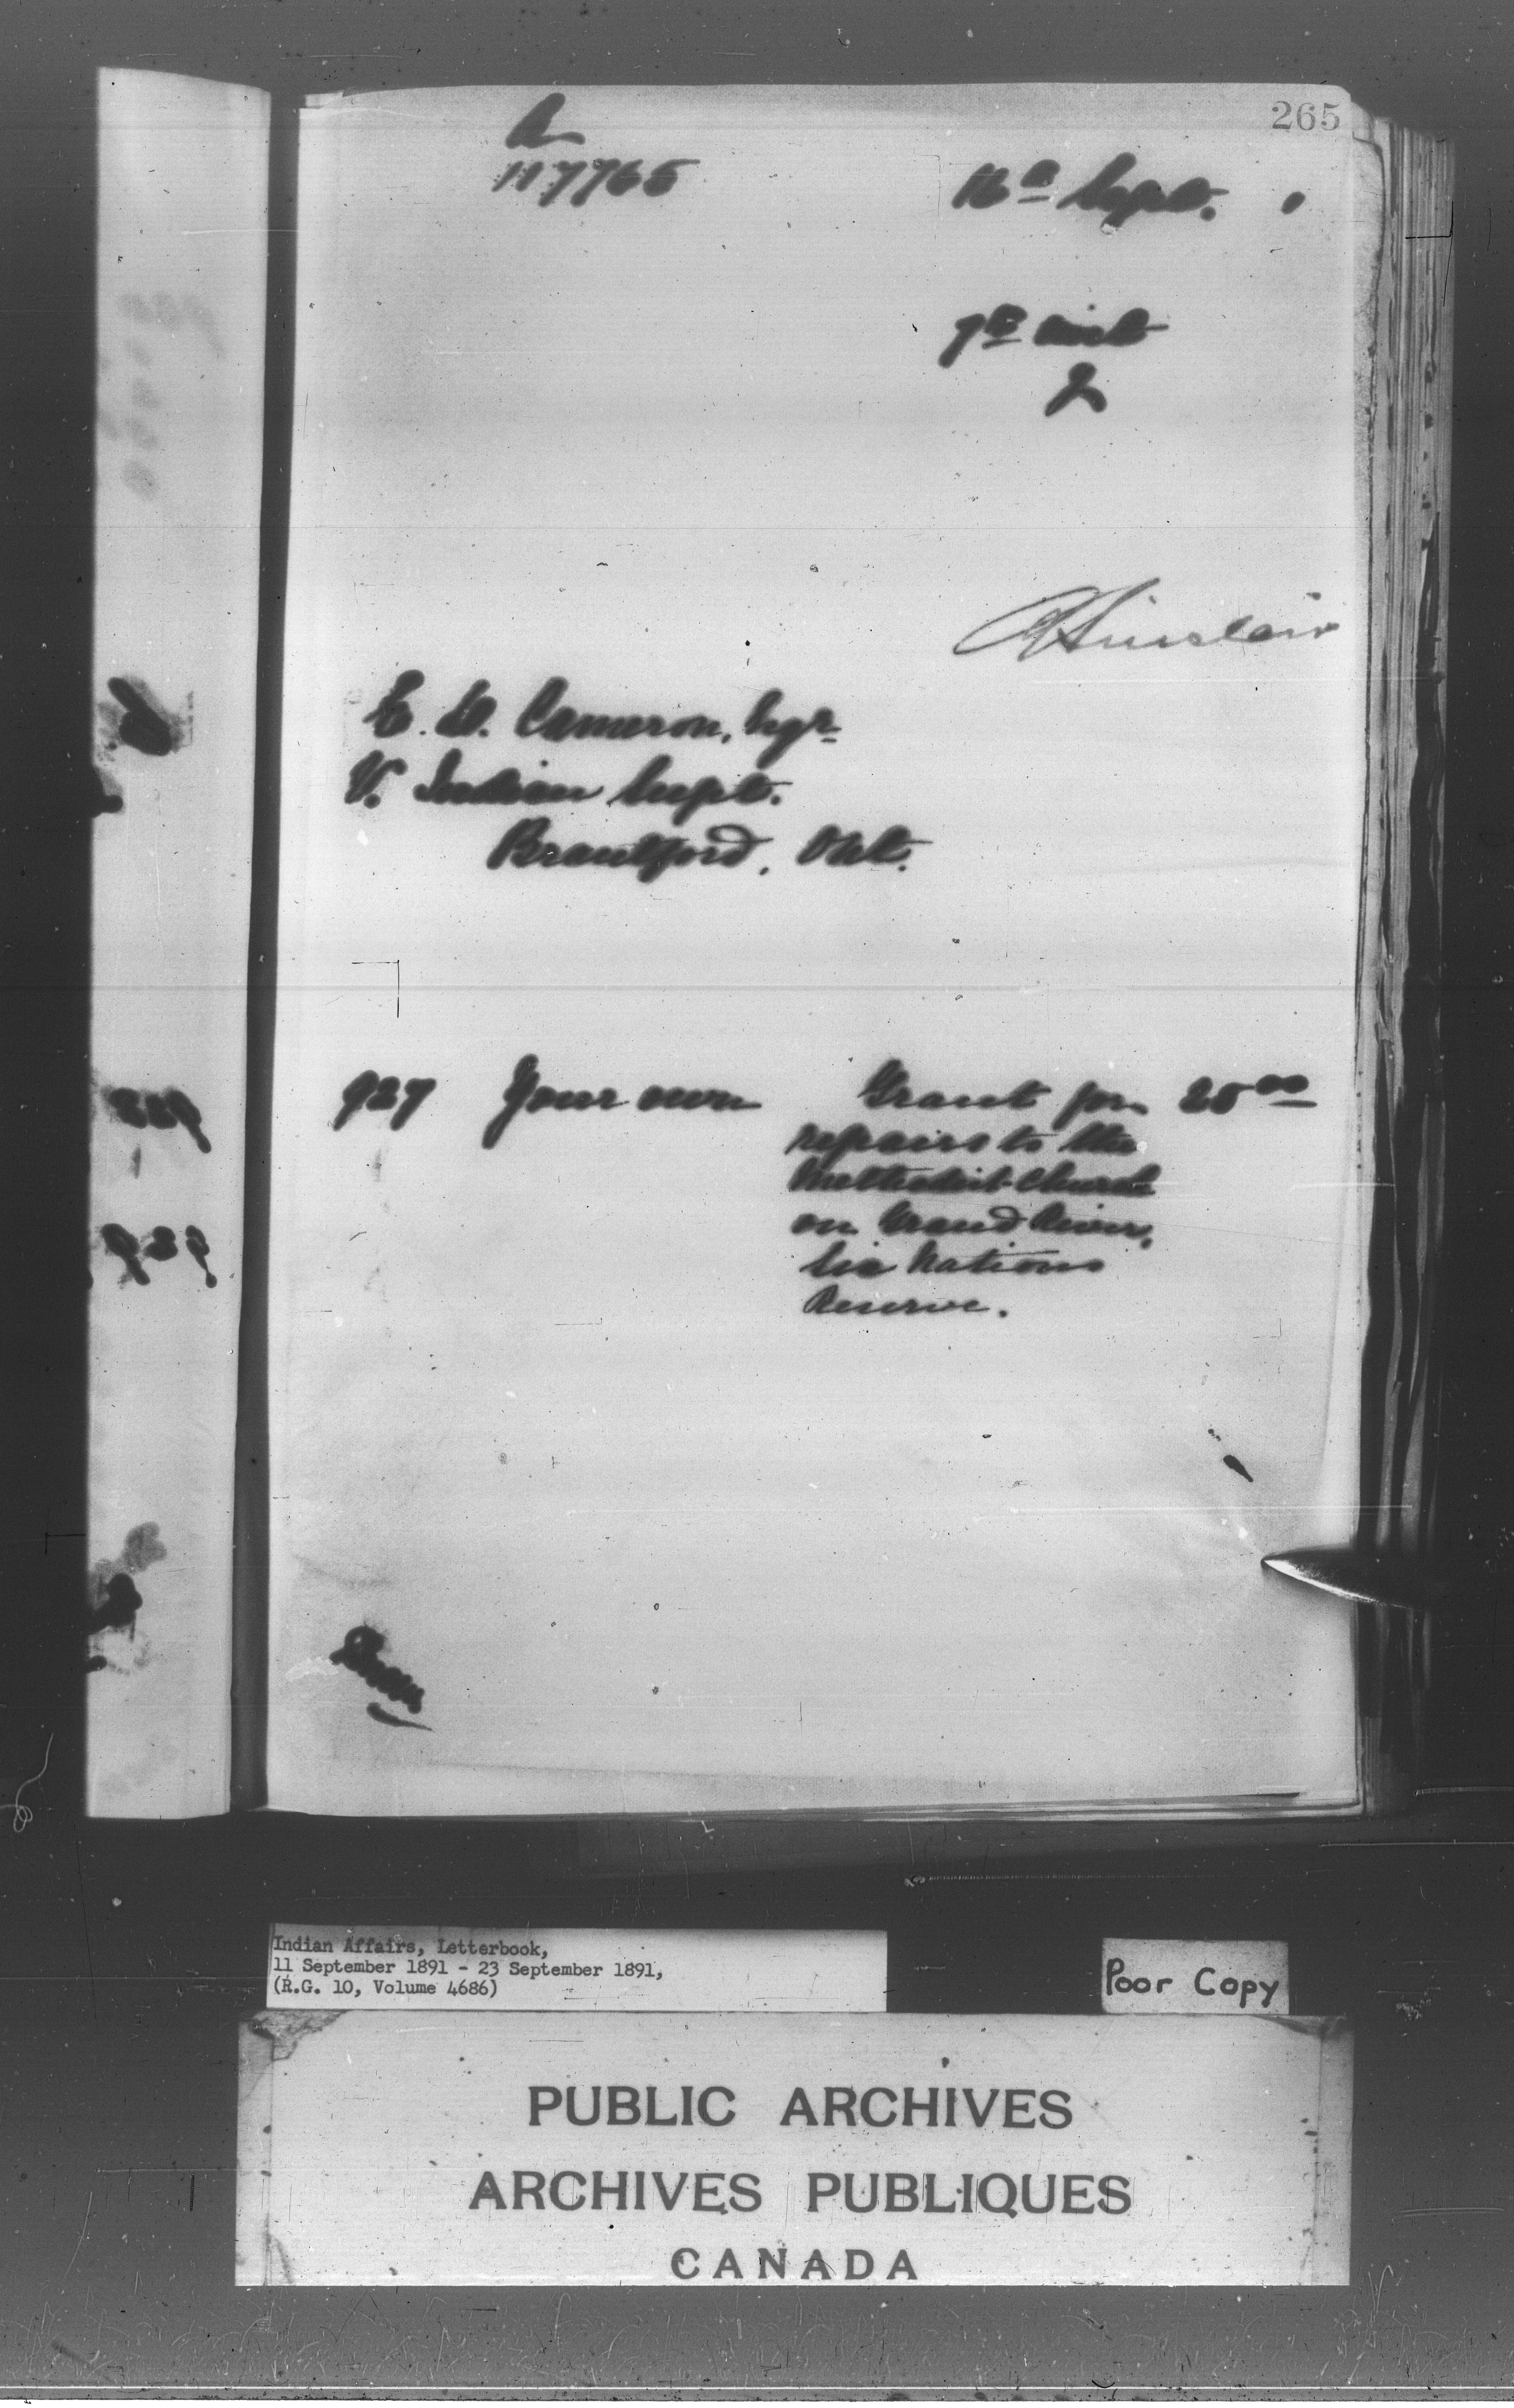 265
A
117765
16th Sept. 1
7th inst
2
A Sinclair
E. D. Cameron, Esqr
V. Indian Supt.
Brantford, Ont.
927 Your own Grant for 25 00
repairs to the
Methodist Church
on Grand River,
Six Nations
Reserve.
Indian Affairs, Letterbook,
11 September 1891 - 23 September 1891,
(R.G. 10, Volume 4686)
Poor Copy
PUBLIC ARCHIVES
ARCHIVES PUBLIQUES
CANADA